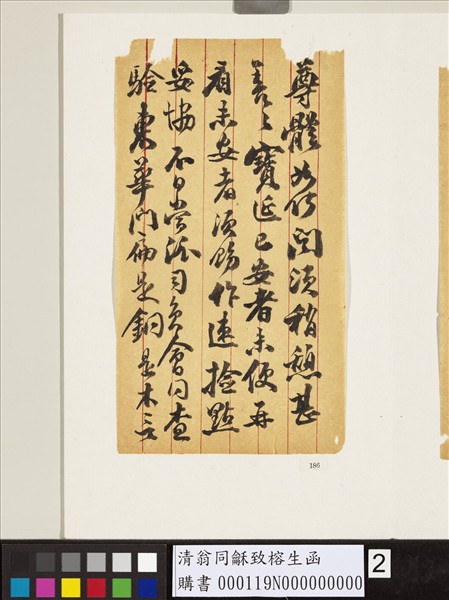 尊體如何聞須稍憩甚
善〻寶匣已安者未便再
看未安者須飭作速撿點
妥協不日當派司員會同查
驗東華門扁是銅是木
186
清翁同龢致榕生函
購書 000119N000000000
2